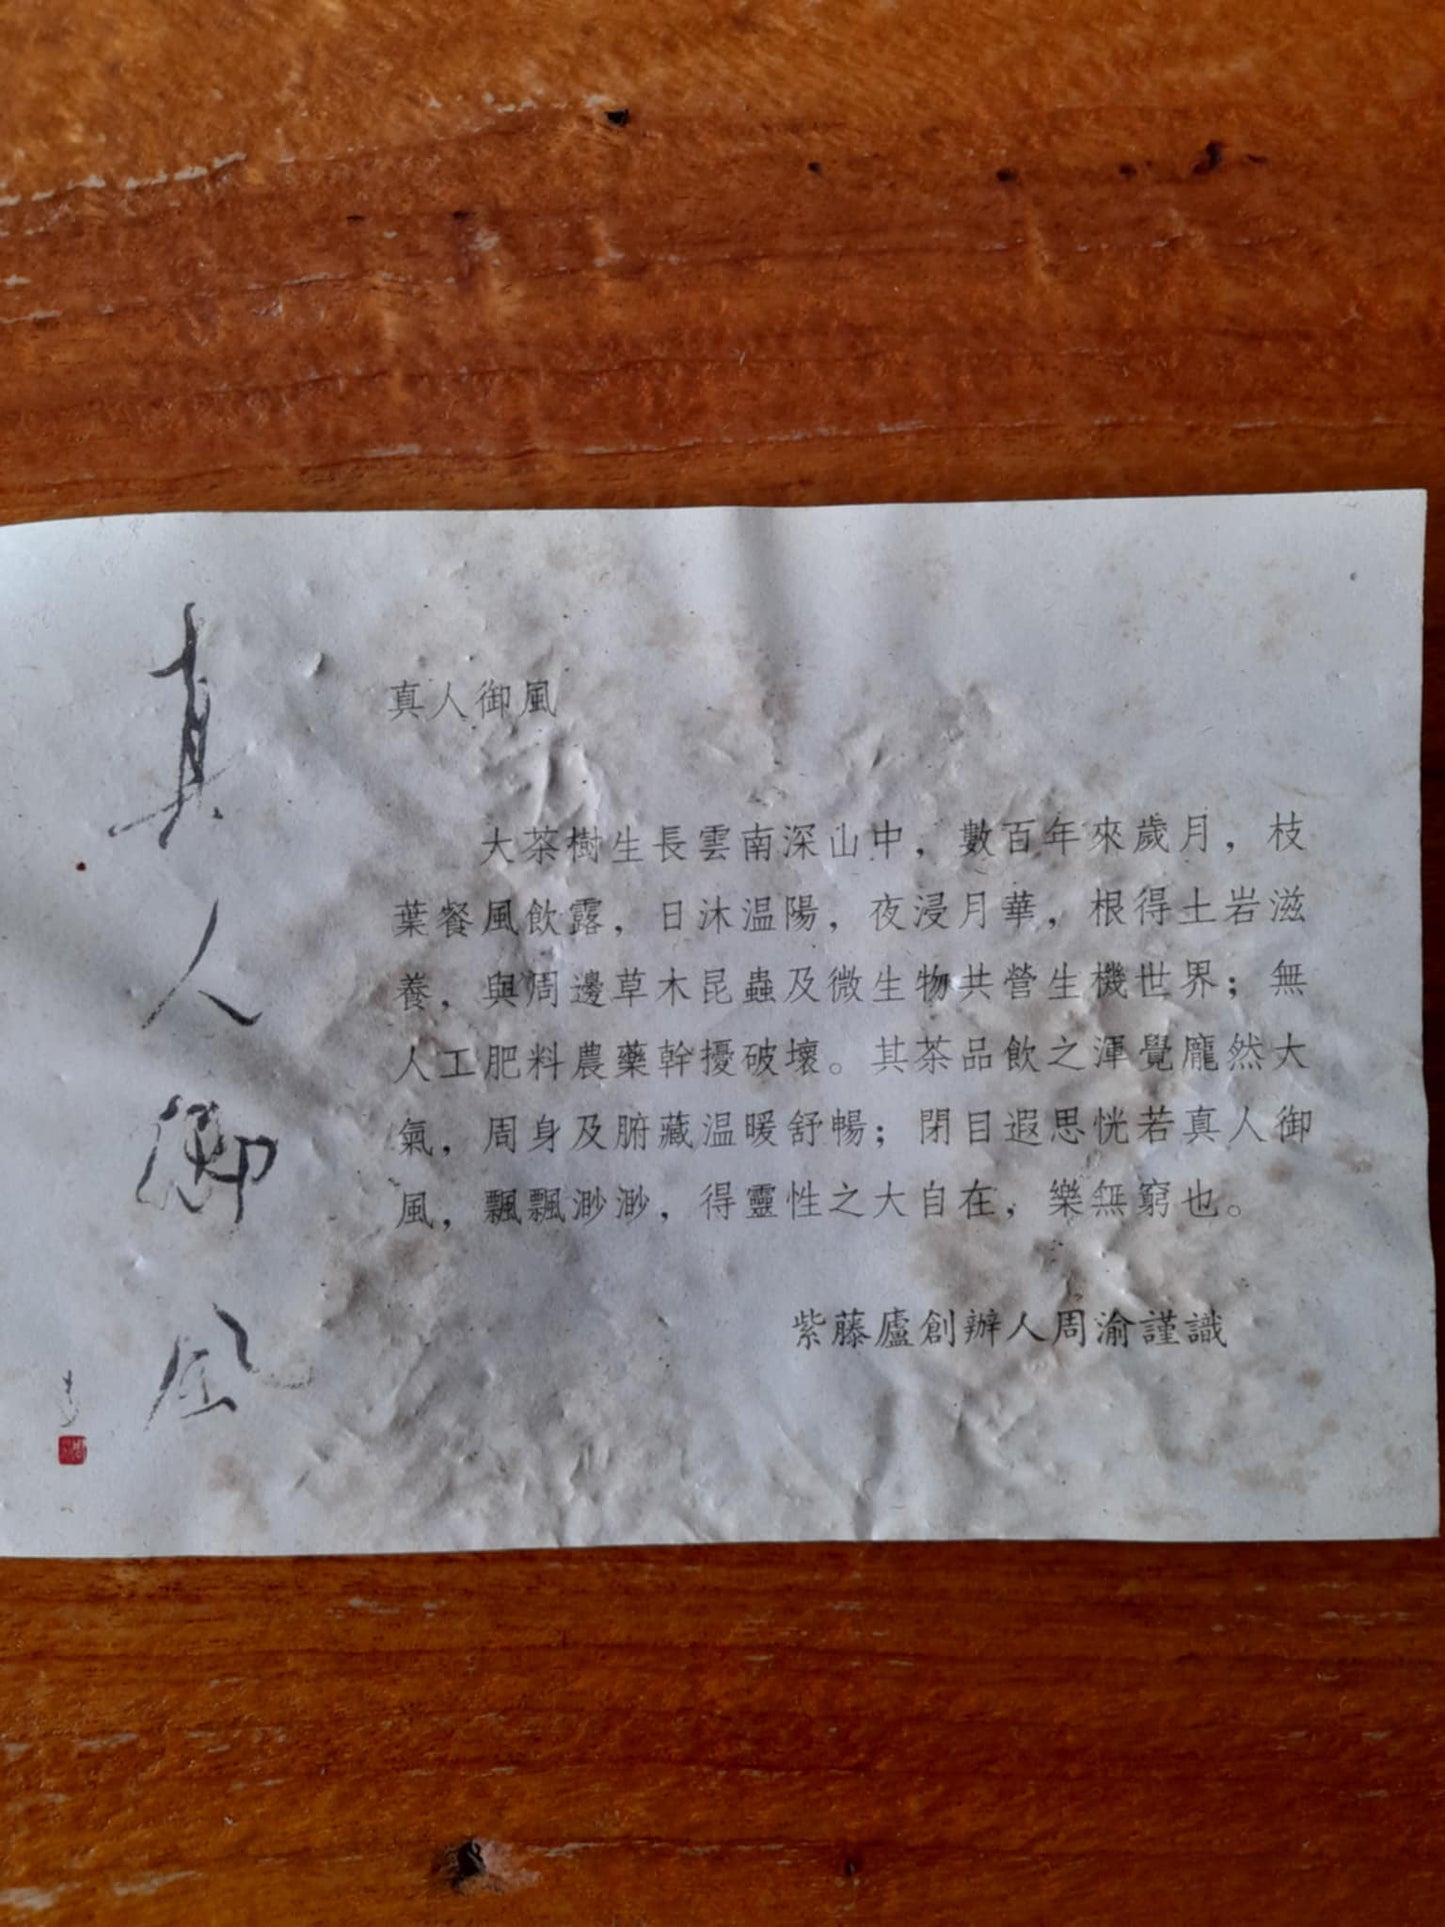 真人御風
真人御風
大茶樹生長雲南深山中，數百年來歲月，枝
葉餐風飲露，日沐温陽，夜浸月華，根得土岩滋
養，與周邊草木昆蟲及微生物共營生機世界；無
人工肥料農藥幹擾破壞。其茶品飲之渾覺龐然大
氣，周身及腑藏温暖舒暢；閉目遐思恍若真人御
風，飄飄渺渺，得靈性之大自在，樂無窮也。
紫藤廬創辦人周渝謹識